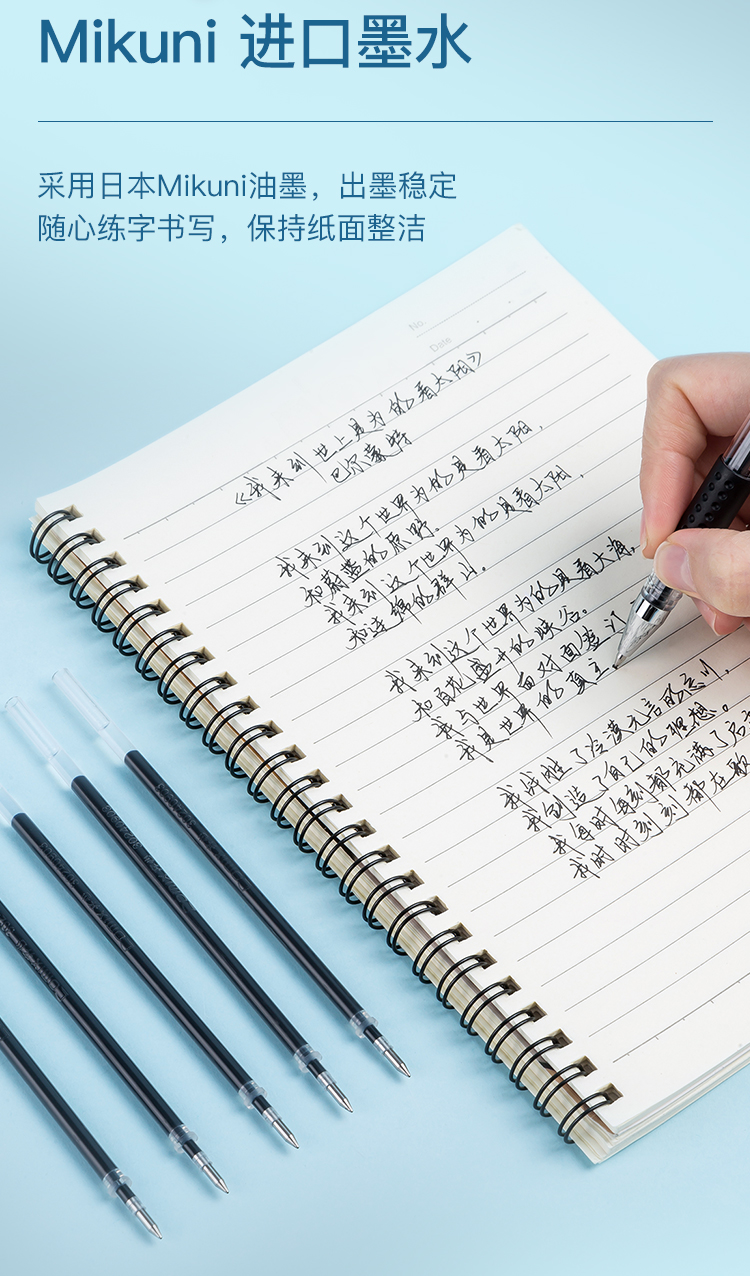 Mikuni 进口墨水
采用日本Mikuni油墨，出墨稳定
随心练字书写，保持纸面整洁
No.
Date
《我来到世上是为的看太阳》
巴尔蒙特
我来到这个世界为的是看太阳，
和蔚蓝的原野。
我来到这个世界为的是看太阳，
和连绵的群山。
我来到这个世界为的是看大海，
和百花盛开的峡谷。
我与世界面对面签订
我是世界的真主
我战胜了冷漠无言的忘川，
我创造了自己的理想。
我每时每刻都充满了启示
我时时刻刻都在歌